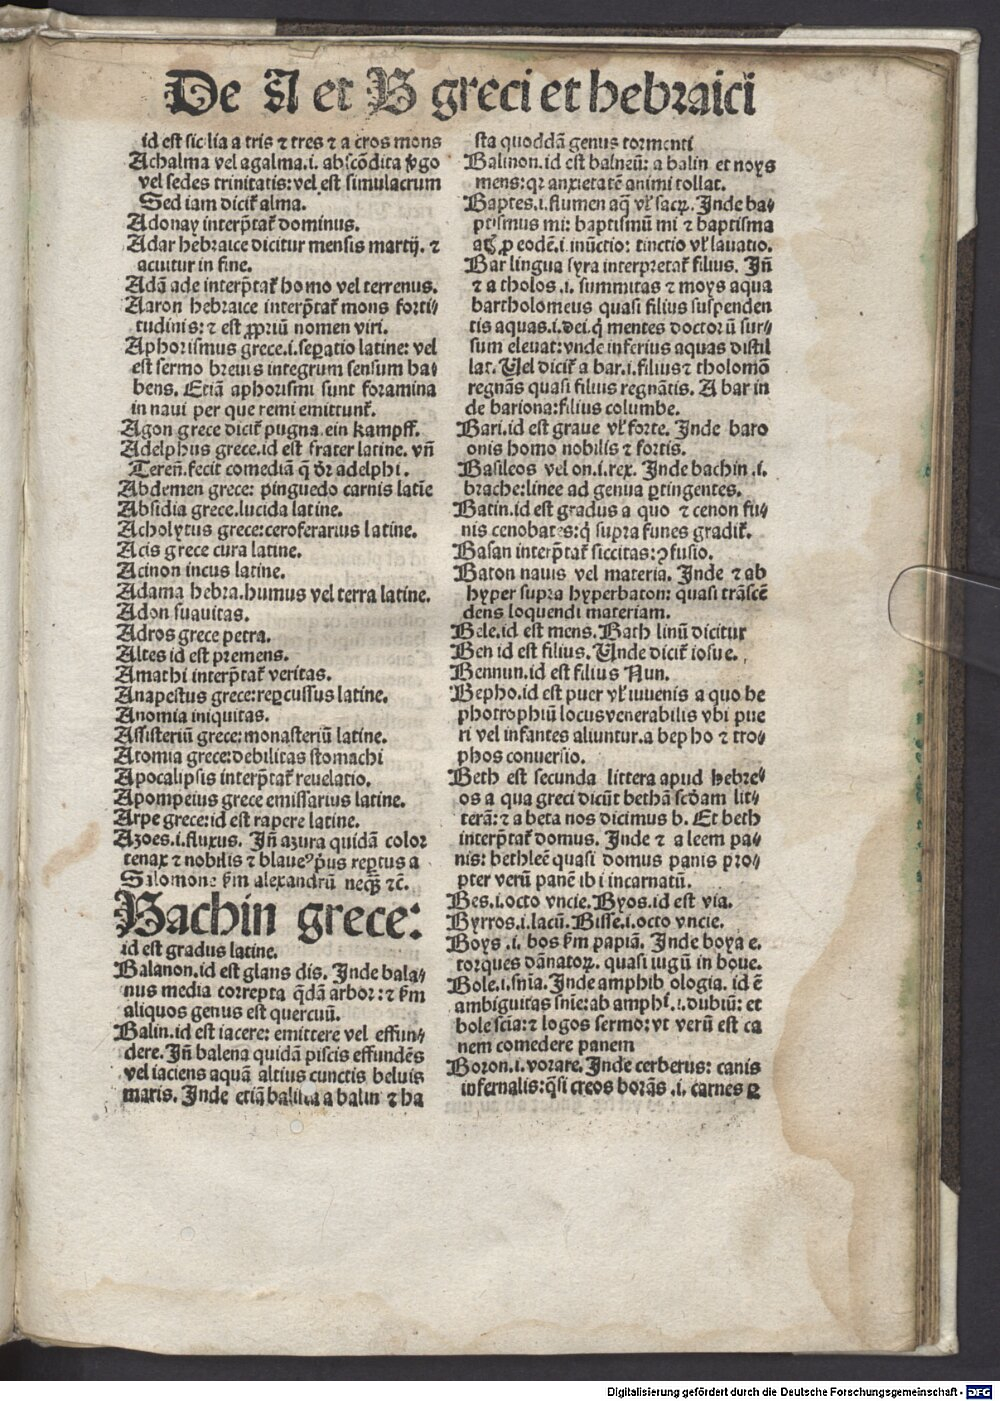 De A et B greci et hebraici
id est sicilia a tris ⁊ tres ⁊ a cros mons
Achalma vel agalma.i. abscōdita v̄go
vel sedes trinitatis: vel est simulacrum
Sed iam dicit̄ alma.
Adonay interp̄tat̄ dominus.
Adar hebraice dicitur mensis martij. ⁊
acuitur in fine.
Adā ade interp̄tat̄ homo vel terrenus.
Aaron hebraice interp̄tat̄ mons forti⸗
tudinis: ⁊ est ꝓpriū nomen viri.
Aphorismus grece.i.sep̄atio latine: vel
est sermo breuis integrum sensum ha⸗
bens. Etiā aphorismi sunt foramina
in naui per que remi emittunt̄.
Agon grece dicit̄ pugna. ein kampff.
Adelphus grece.id est frater latine. vn̄
Teren̄.fecit comediā q̄ dr̄ adelphi.
Abdemen grece: pinguedo carnis latīe
Absidia grece.lucida latine.
Acholytus grece:ceroferarius latine.
Acis grece cura latine.
Acinon incus latine.
Adama hebra.humus vel terra latine.
Adon suauitas.
Adros grece petra.
Altes id est premens.
Amathi interp̄tat̄ veritas.
Anapestus grece:reꝑcussus latine.
Anomia iniquitas.
Assisteriū grece:monasteriū latine.
Atomia grece:debilitas stomachi
Apocalipsis interp̄tat̄ reuelatio.
Apompeius grece emissarius latine.
Arpe grece:id est rapere latine.
Azoes.i.fluxus. Jn̄ azura quidā color
tenax ⁊ nobilis ⁊ blaueꝰ p̄us rep̄tus a
Salomone s̄m alexandrū neqꝫ̄ ⁊c̄.
Bachin grece:
id est gradus latine.
Balanon.id est glans dis. Jnde bala⸗
nus media correpta q̄dā arbor: ⁊ s̄m
aliquos genus est quercuū.
Balin.id est iacere: emittere vel effun⸗
dere. Jn̄ balena quidā piscis effundēs
vel iaciens aquā altius cunctis beluis
maris. Jnde etiā balista a balin ⁊ ba
sta quoddā genus tormenti
Balinon.id est balneū: a balin et noys
mens:qꝛ anxietatē animi tollat.
Baptes.i.flumen aq̄ vl̄ sacꝝ. Jnde ba⸗
ptismus mi: baptismū mi ⁊ baptisma
atis ꝓ eodē.i.inūctio: tinctio vl̄ lauatio.
Bar lingua syra interpretat̄ filius. Jn̄
⁊ a tholos .i. summitas ⁊ moys aqua
bartholomeus quasi filius suspenden
tis aquas.i.dei.q̇ mentes doctorū sur⸗
sum eleuat:vnde inferius aquas distil
lat. Vel dicit̄ a bar.i.filius ⁊ tholomō
regnās quasi filius regnātis. A bar in
de bariona:filius columbe.
Bari.id est graue vl̄ forte. Jnde baro
onis homo nobilis ⁊ fortis.
Basileos vel on.i.rex. Jnde bachin .i.
brache:linee ad genua ꝑtingentes.
Batin.id est gradus a quo ⁊ cenon fu⸗
nis cenobates:q̇ supra funes gradit̄.
Basan interp̄tat̄ siccitas:ꝯfusio.
Baton nauis vel materia. Jnde ⁊ ab
hyper supra hyperbaton: quasi trāscē
dens loquendi materiam.
Bele.id est mens. Bath linū dicitur
Ben id est filius. Vnde dicit̄ iosue.
Bennun.id est filius Nun.
Bepho.id est puer vl̄ iuuenis a quo be
photrophiū locus venerabilis vbi pue
ri vel infantes aliuntur.a bepho ⁊ tro⸗
phos conuersio.
Beth est secunda littera apud hebre⸗
os a qua greci dicūt bethā scdam lit⸗
terā: ⁊ a beta nos dicimus b. Et beth
interp̄tat̄ domus. Jnde ⁊ a leem pa⸗
nis: bethleē quasi domus panis pro⸗
pter verū panē ibi incarnatū.
Bes.i.octo vncie. Byos.id est via.
Byrros.i.lacū. Bisse.i.octo vncie.
Boys .i. bos s̄m papiā. Jnde boya e.
torques dānatoꝝ. quasi iugū in boue.
Bole.i.sn̄ia. Jnde amphibologia. id ē
ambiguitas sn̄ie:ab amphi .i.dubiū: et
bole scīa: ⁊ logos sermo: vt verū est ca
nem comedere panem
Boron.i.vorare. Jnde cerberus: canis
infernalis:q̄si creos borās .i. carnes
Digitalisierung gefördert durch die Deutsche Forschungsgemeinschaft - DFG